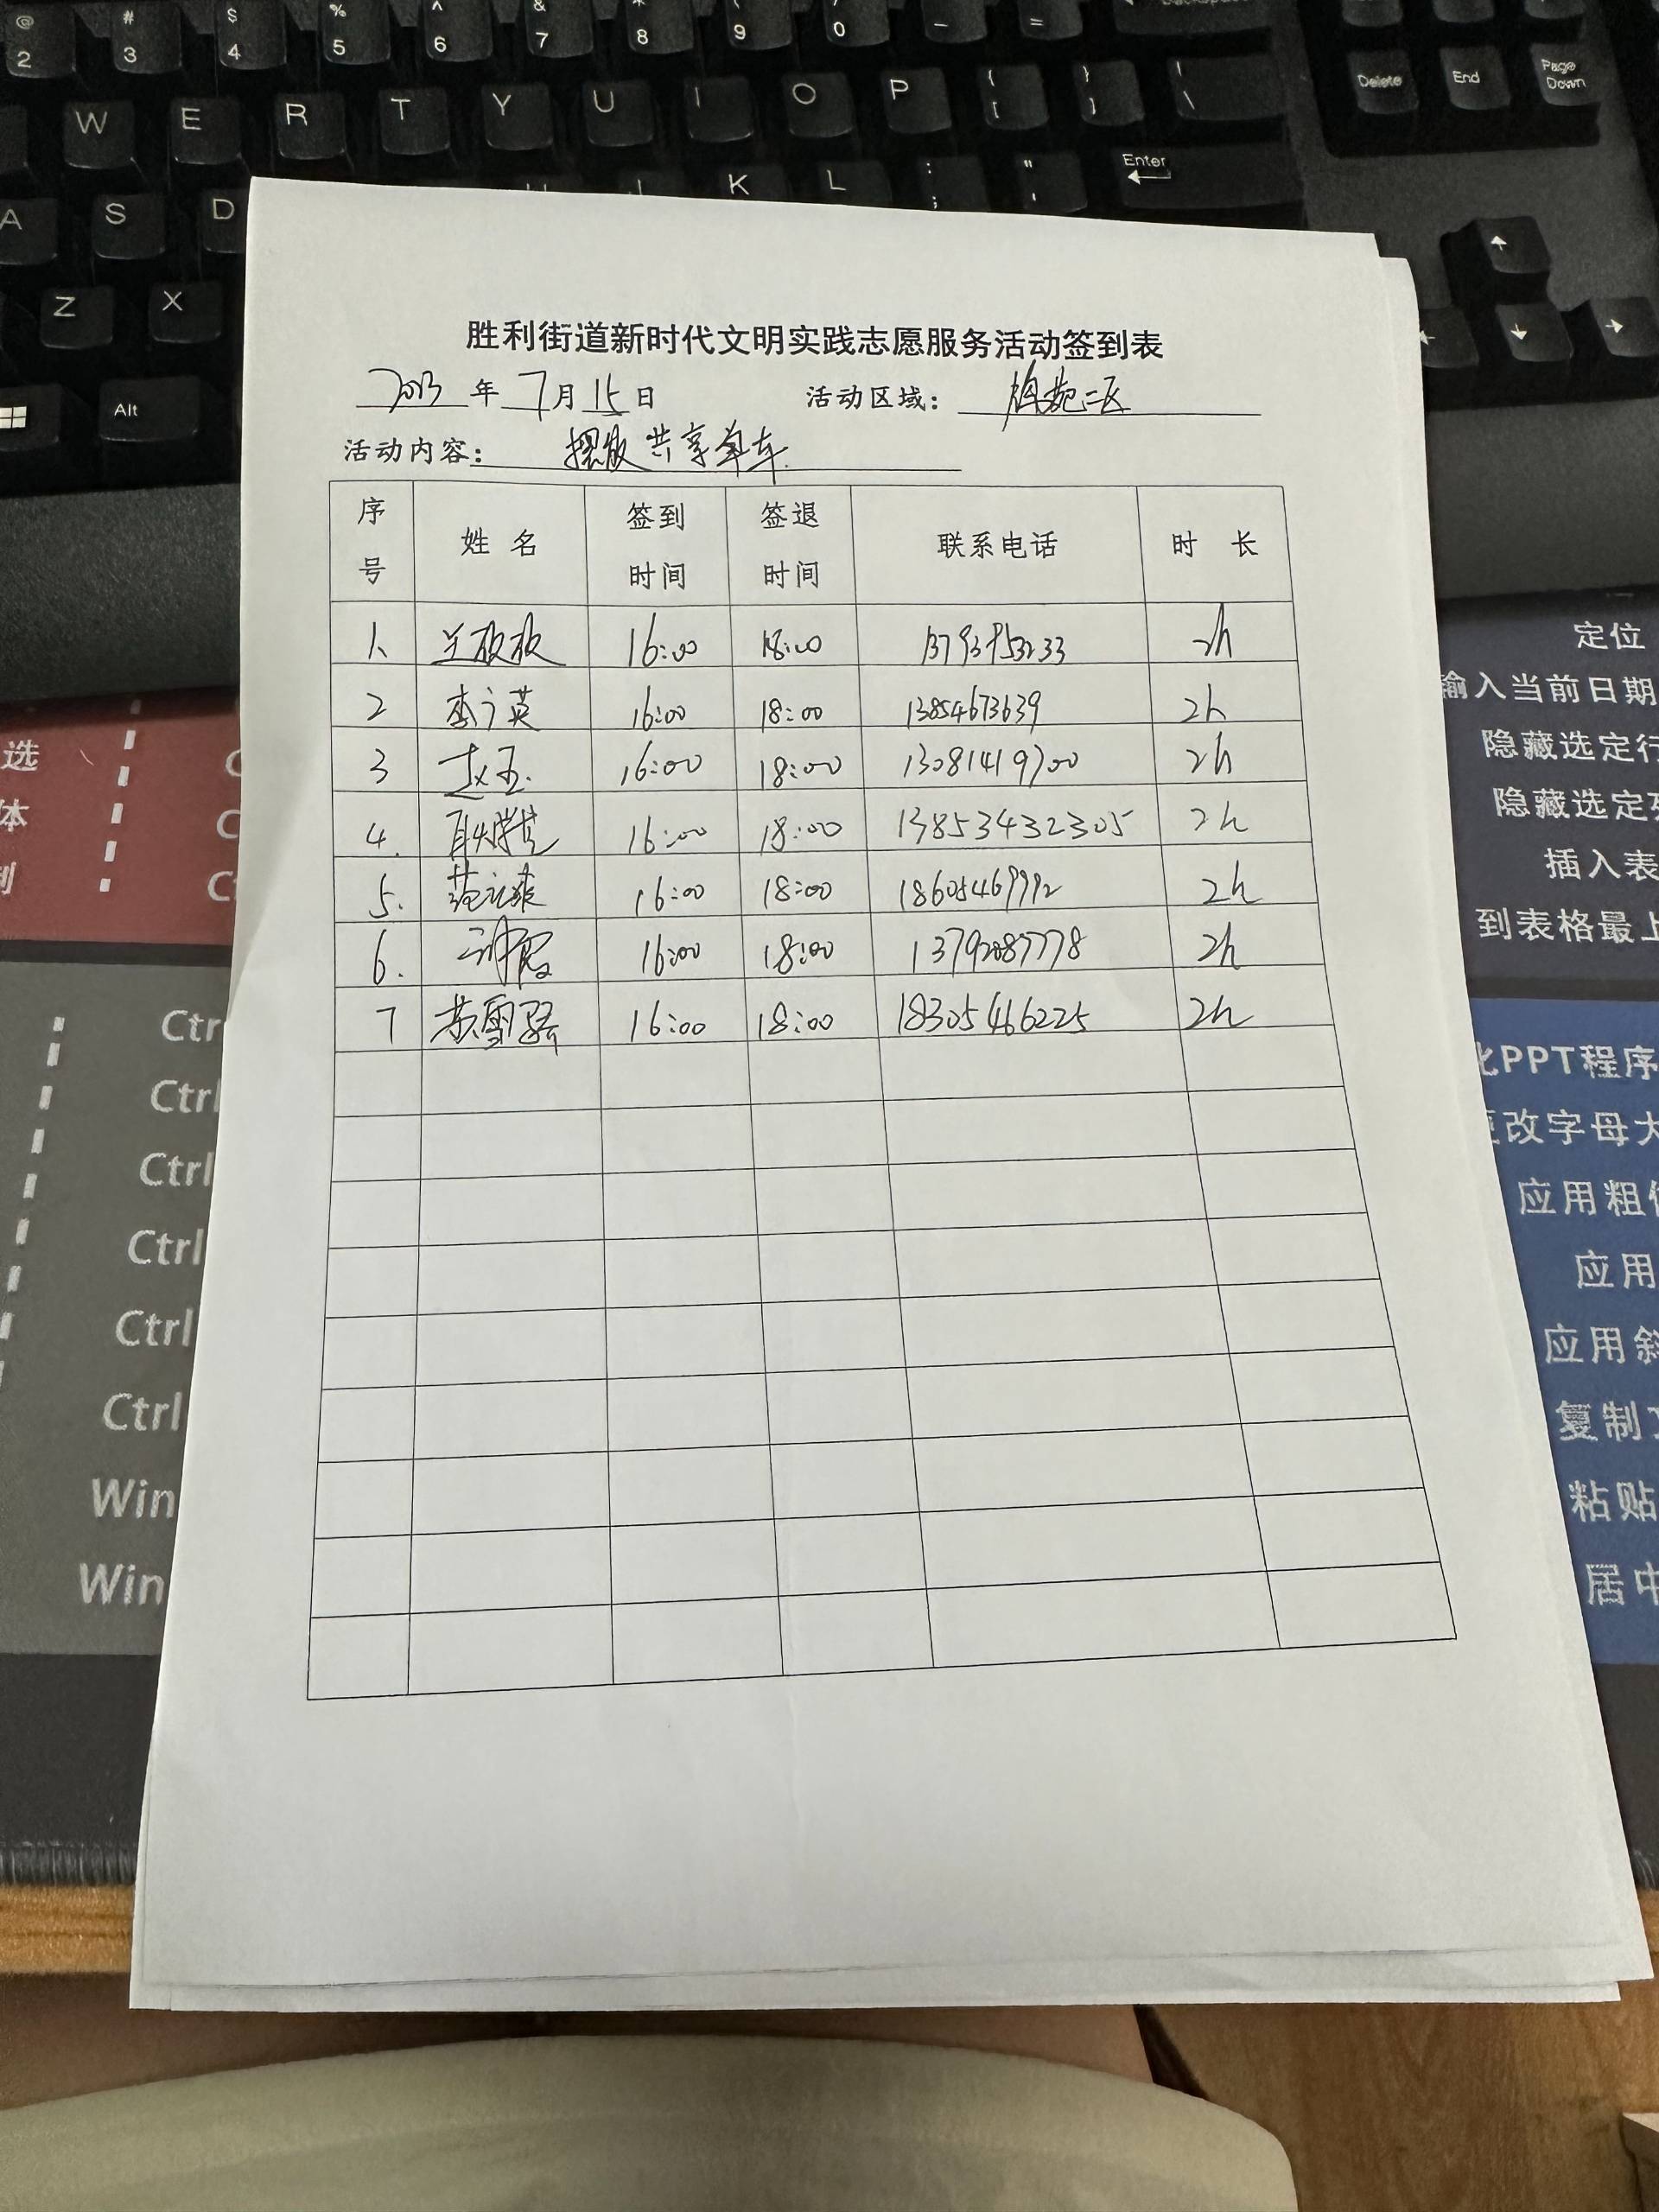 @ # $ % ^ & * ( ) _ +
2 3 4 5 6 7 8 9 0 - =
Delete End Page Down
W E R T Y U I O P { [ } ] | \
A S D K L : ; " ' Enter
Z X
Alt
胜利街道新时代文明实践志愿服务活动签到表
2023 年 7 月 15 日 活动区域：梅苑二区
活动内容：摆放共享单车
序号 姓名 签到时间 签退时间 联系电话 时长
1、 兰 16:00 18:00 13793953233 2h
2 李兰英 16:00 18:00 13854673639 2h
3 赵玉 16:00 18:00 13081419700 2h
4. 耿 16:00 18:00 13853432305 2h
5. 范 16:00 18:00 18605469992 2h
6. 霞 16:00 18:00 13792087778 2h
7 苏雪 16:00 18:00 18305466225 2h
选
体
制
Ctrl
Ctrl
Ctrl
Ctrl
Ctrl
Ctrl
Win
Win
定位
输入当前日期
隐藏选定行
隐藏选定列
插入表
到表格最上
化PPT程序
更改字母大
应用粗体
应用
应用斜
复制
粘贴
居中